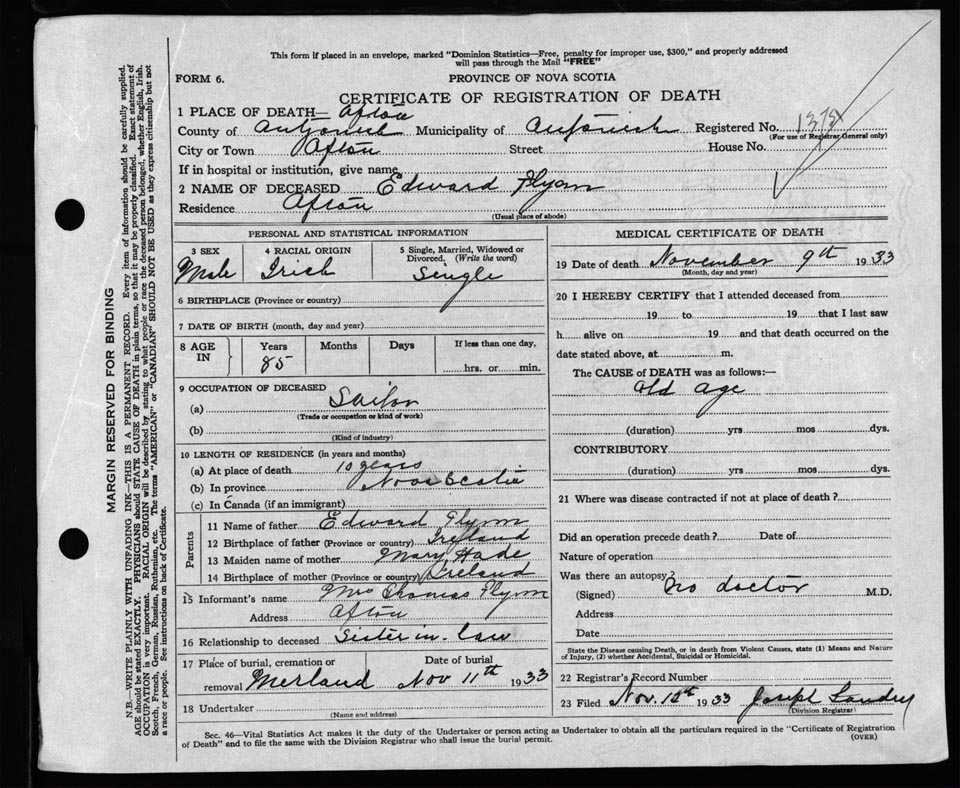 This form if placed in an envelope, marked "Dominion Statistics—Free, penalty for improper use, $300," and properly addressed
will pass through the Mail "FREE"
FORM 6.
PROVINCE OF NOVA SCOTIA
CERTIFICATE OF REGISTRATION OF DEATH
1 PLACE OF DEATH— Afton
County of Antigonish Municipality of Antigonish Registered No. 1375
(For use of Registrar General only)
City or Town Afton Street House No.
If in hospital or institution, give name
2 NAME OF DECEASED Edward Flynn
Residence Afton
(Usual place of abode)
PERSONAL AND STATISTICAL INFORMATION
3 SEX 4 RACIAL ORIGIN 5 Single, Married, Widowed or
Divorced. (Write the word)
Male Irish Single
6 BIRTHPLACE (Province or country)
7 DATE OF BIRTH (month, day and year)
8 AGE IN Years Months Days If less than one day,
85 hrs. or min.
9 OCCUPATION OF DECEASED
(a) Sailor
(Trade or occupation or kind of work)
(b)
(Kind of industry)
10 LENGTH OF RESIDENCE (in years and months)
(a) At place of death 10 years
(b) In province Nova Scotia
(c) In Canada (if an immigrant)
Parents
11 Name of father Edward Flynn
12 Birthplace of father (Province or country) Ireland
13 Maiden name of mother Mary Hade
14 Birthplace of mother (Province or country) Ireland
15 Informant's name Mrs Thomas Flynn
Address Afton
16 Relationship to deceased Sister in-law
17 Place of burial, cremation or Date of burial
removal Merland Nov 11th 1933
18 Undertaker
(Name and address)
MEDICAL CERTIFICATE OF DEATH
19 Date of death November 9th 1933
(Month, day and year)
20 I HEREBY CERTIFY that I attended deceased from
19 to 19 that I last saw
h alive on 19 and that death occurred on
date stated above, at m.
The CAUSE of DEATH was as follows:—
old age
(duration) yrs mos dys.
CONTRIBUTORY
(duration) yrs mos dys.
21 Where was disease contracted if not at place of death?
Did an operation precede death? Date of
Nature of operation
Was there an autopsy?
(Signed) no doctor M.D.
Address
Date
State the Disease causing Death, or in death from Violent Causes, state (1) Means and Nature
of Injury, (2) whether Accidental, Suicidal or Homicidal.
22 Registrar's Record Number
23 Filed Nov. 12th 1933 Joseph Landry
(Division Registrar)
Sec. 46—Vital Statistics Act makes it the duty of the Undertaker or person acting as Undertaker to obtain all the particulars required in the "Certificate of Registration
of Death" and to file the same with the Division Registrar who shall issue the burial permit.
(OVER)
MARGIN RESERVED FOR BINDING
N.B.—WRITE PLAINLY WITH UNFADING INK—THIS IS A PERMANENT RECORD. Every item of information should be carefully supplied.
AGE should be stated EXACTLY. PHYSICIANS should STATE CAUSE OF DEATH in plain terms, so that it may be properly classified. Exact statement of
OCCUPATION is very important. RACIAL ORIGIN will be described by stating to what people or race the deceased person belonged, whether English, Irish,
Scotch, French, German, Russian, Ruthenian, etc. The terms "AMERICAN" or "CANADIAN" SHOULD NOT BE USED as they express citizenship but not
a race or people. See instructions on back of Certificate.